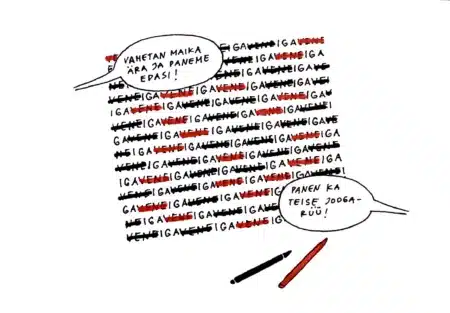 VAHETAN MAIKA
ÄRA JA PANEME
EDASI!
IGAVENEIGAVENE
VENEIGAVENEIGA
IGAVENEIGAVENEIGAVE
VENEIGAVENEIGAVENEIGAVENEIGAVE
IGAVENEIGAVENEIGAVENEIGAVENEI
VENEIGAVENEIGAVENEIGAVENEIGA
GAVENEIGAVENEIGAVENEIGAVENE
NEIGAVENEIGAVENEIGAVENEIGA
VENEIGAVENEIGAVENEIGAVENEIGA
IGAVENEIGAVENEIGAVENEIGAVENE
VENEIGAVENEIGAVENEIGA
GAVENEIGAVENEIGAVENEIGA
VENEIGAVENEIGAVENEIGA
VENEIGAVENEIGAVENEIGA
PANEN KA
TEISE JOOGA-
RÜÜ!